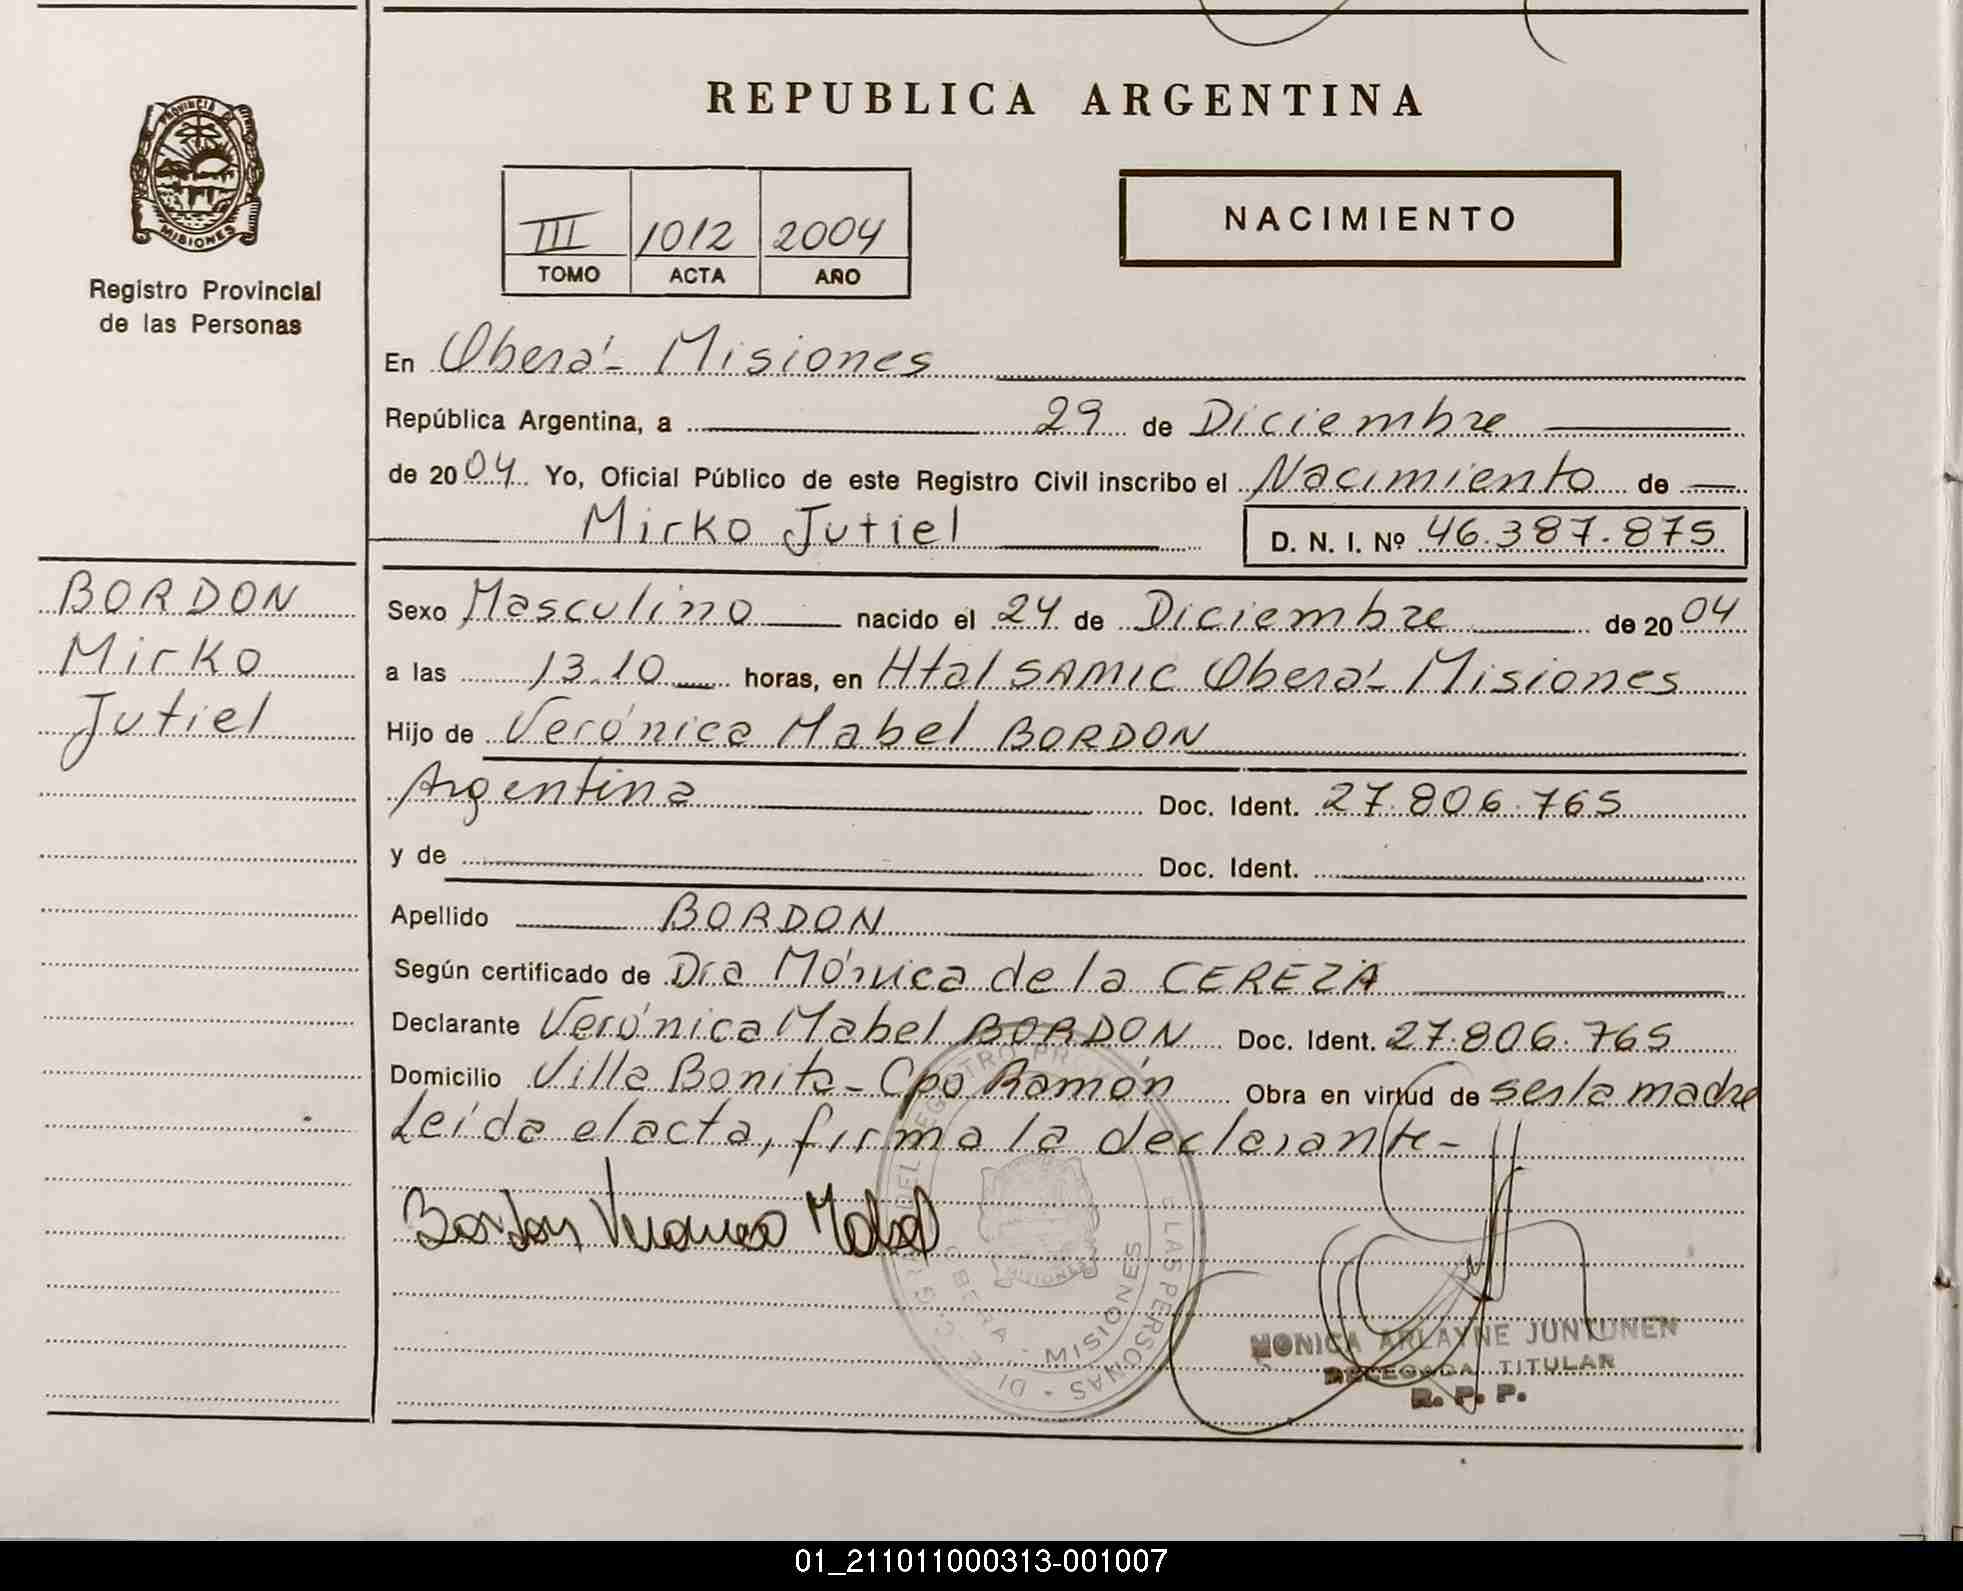 REPUBLICA ARGENTINA
PROVINCIA DE
MISIONES
Registro Provincial
de las Personas
III 1012 2004
TOMO ACTA AÑO
NACIMIENTO
En Oberá - Misiones
República Argentina, a 29 de Diciembre
de 2004 Yo, Oficial Público de este Registro Civil inscribo el Nacimiento de
Mirko Jutiel D. N. I. Nº 46.387.875
BORDON
Mirko
Jutiel
Sexo Masculino nacido el 24 de Diciembre de 2004
a las 13.10 horas, en Htal SAMIC Oberá - Misiones
Hijo de Verónica Mabel BORDON
Argentina Doc. Ident. 27.806.765
y de Doc. Ident.
Apellido BORDON
Según certificado de Dra Mónica de la CEREZA
Declarante Verónica Mabel BORDON Doc. Ident. 27.806.765
Domicilio Villa Bonita - Cpo Ramón Obra en virtud de ser la madre
Leída el acta, firma la declarante -
Bordon Veronica Mabel
DEL REGISTRO DE LAS PERSONAS
OBERA - MISIONES
MISIONES
MONICA ARLAYNE JUNTUNEN
DELEGADA TITULAR
R. P. P.
01_211011000313-001007